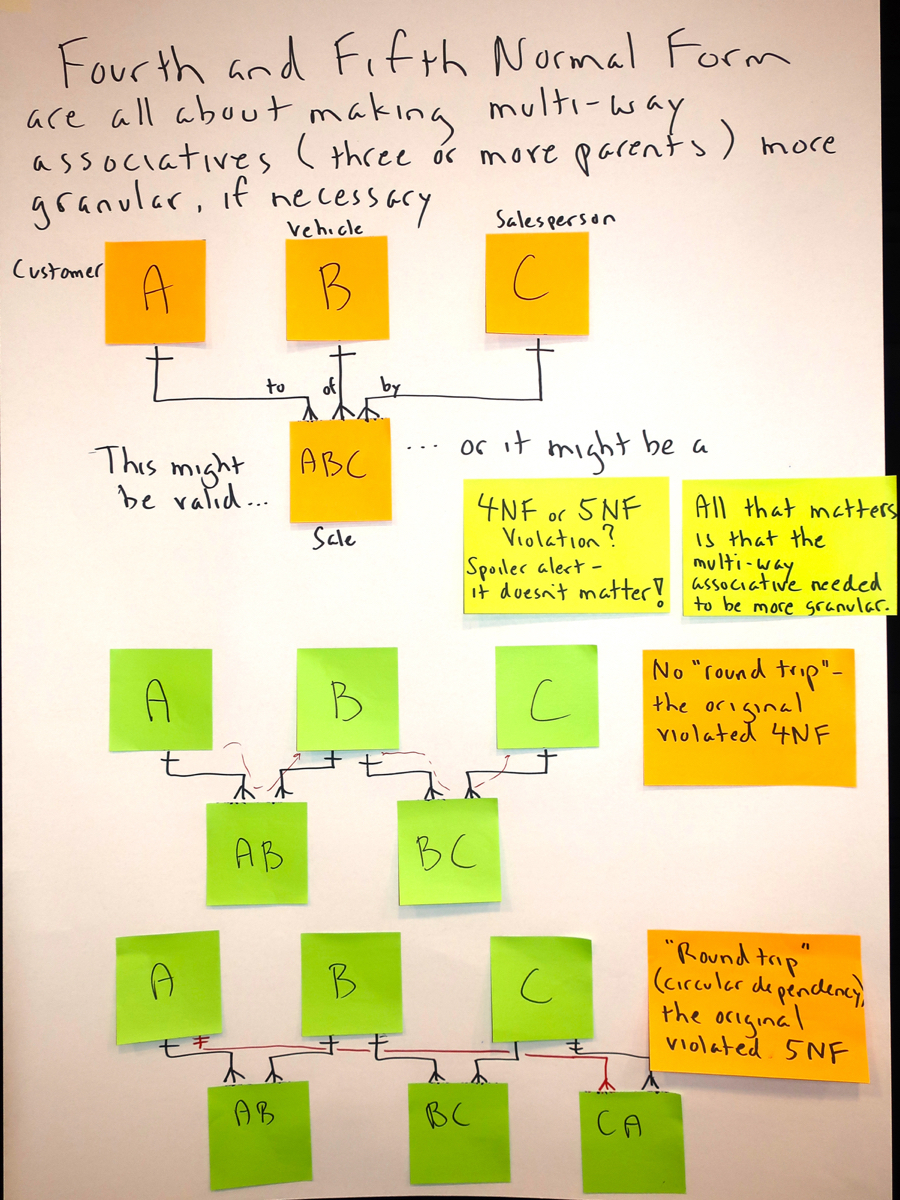 Fourth and Fifth Normal Form
are all about making multi-way
associatives (three or more parents) more
granular, if necessary
Customer
Vehicle
Salesperson
A
B
C
to
of
by
This might
be valid...
ABC
Sale
... or it might be a
4NF or 5NF
Violation?
Spoiler alert -
it doesn't matter!
All that matters
is that the
multi-way
associative needed
to be more granular.
A
B
C
AB
BC
No "round trip" -
the original
violated 4NF
A
B
C
AB
BC
CA
"Round trip"
(circular dependency)
the original
violated 5NF